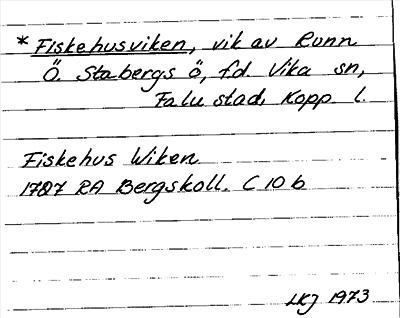 * Fiskehusviken, vik av Runn
Ö. Stabergs ö, f.d. Vika sn,
Falu stad, Kopp. l.
Fiskehus Wiken
1727 RA Bergskoll. C 10 b
LKJ 1973